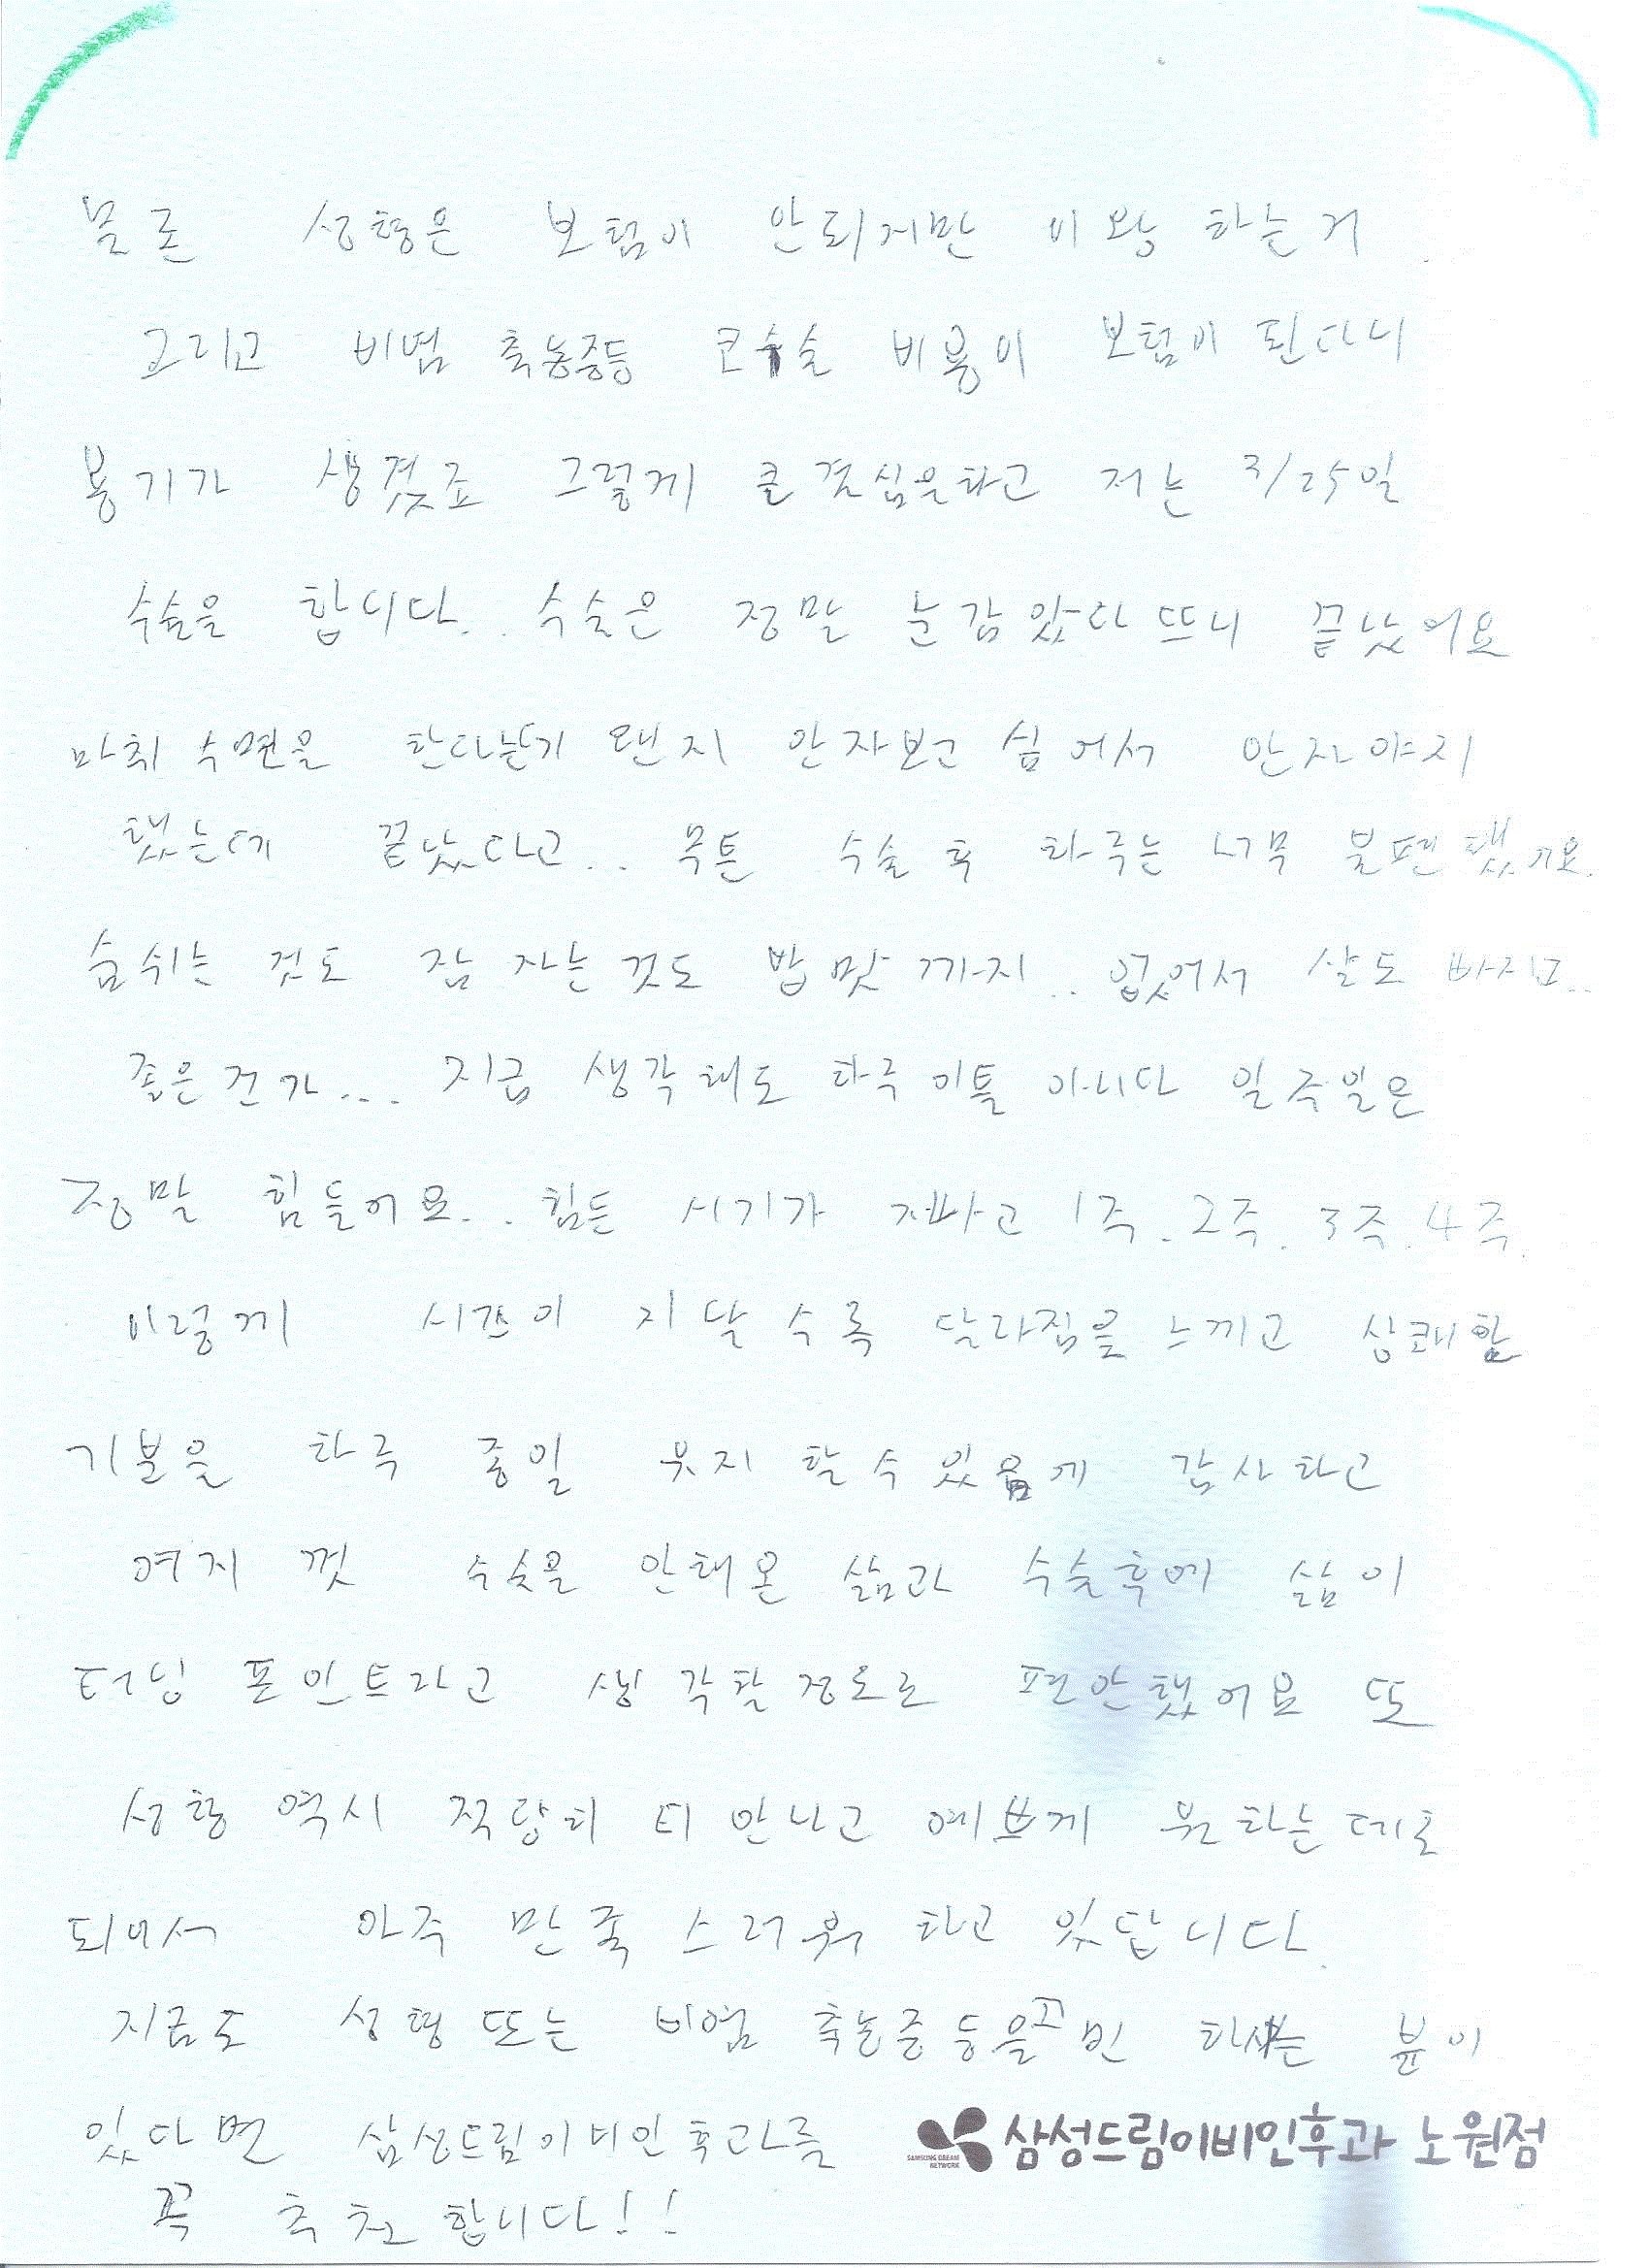 물론 성형은 보험이 안되지만 이왕 하는거
그리고 비염 축농증등 코수술 비용이 보험이 된다니
용기가 생겼죠 그렇게 큰 결심을하고 저는 3/25일
수술을 합니다.. 수술은 정말 눈감았다 뜨니 끝났어요
마취 수면을 한다는게 왠지 안자보고 싶어서 안자야지
했는데 끝났다고.. 무튼 수술 후 하루는 너무 불편했구요.
숨쉬는 것도 잠 자는 것도 밥 맛 까지.. 없어서 살도 빠지고..
좋은건가... 지금 생각해도 하루 이틀 아니다 일주일은
정말 힘들어요.. 힘든 시기가 지나고 1주. 2주. 3주. 4주.
이렇게 시간이 지날 수록 달라짐을 느끼고 상쾌함
기분을 하루 종일 유지 할 수 있음에 감사하고
여지껏 수술을 안해온 삶과 수술후에 삶이
터닝 포인트라고 생각할정도로 편안했어요 또
성형 역시 적당히 티 안나고 예쁘게 원하는데로
되어서 아주 만족 스러워 하고 있답니다.
지금도 성형 또는 비염 축농증 등을 고민 하시는 분이
있다면 삼성드림이비인후과를
SAMSUNG DREAM NETWORK 삼성드림이비인후과 노원점
꼭 추천합니다!!